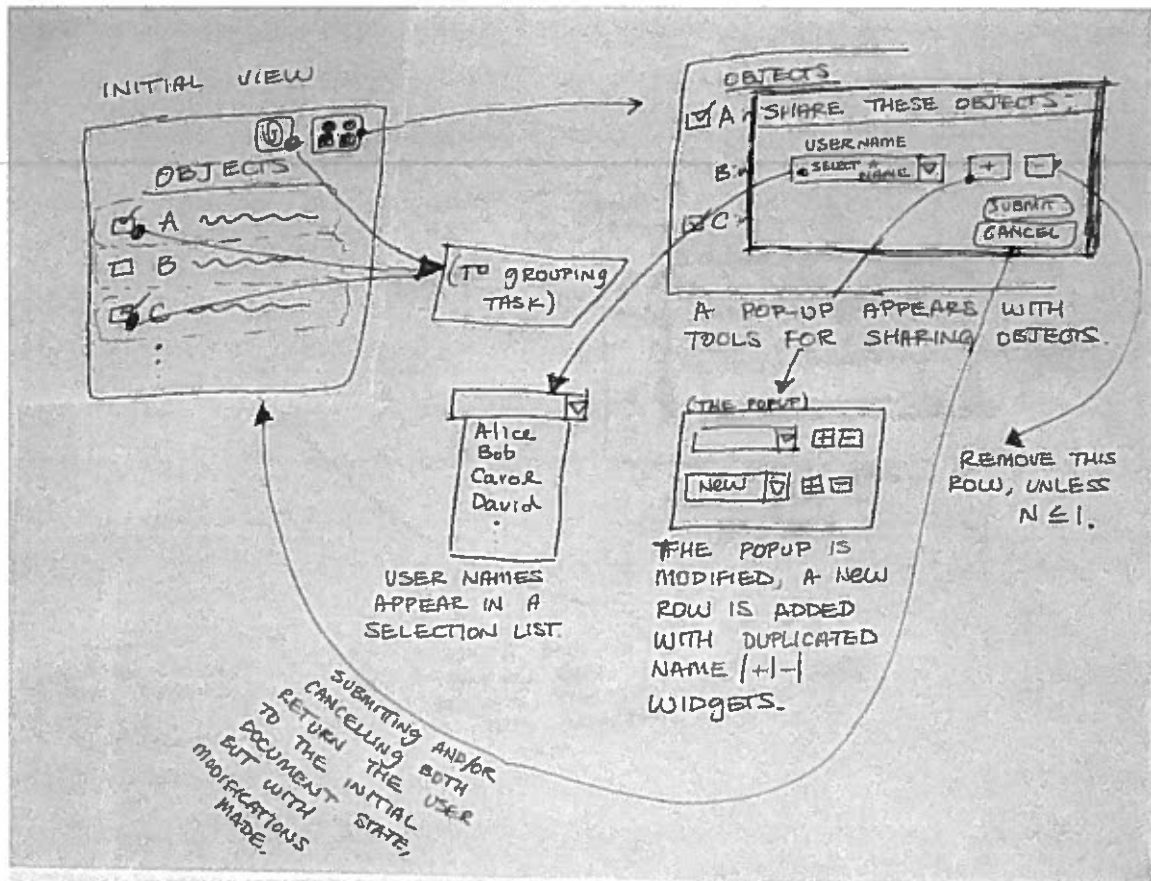 INITIAL VIEW
OBJECTS
A
B
C
(TO GROUPING
TASK)
OBJECTS
A
B
C
SHARE THESE OBJECTS:
USERNAME
SELECT A
NAME
+
-
SUBMIT
CANCEL
A POP-UP APPEARS WITH
TOOLS FOR SHARING OBJECTS.
Alice
Bob
Carol
David
USER NAMES
APPEAR IN A
SELECTION LIST.
(THE POPUP)
+ -
New
+ -
THE POPUP IS
MODIFIED, A NEW
ROW IS ADDED
WITH DUPLICATED
NAME |+|-|
WIDGETS.
REMOVE THIS
ROW, UNLESS
N ≤ 1.
SUBMITTING AND/OR
CANCELLING BOTH
RETURN THE USER
TO THE INITIAL
DOCUMENT STATE,
BUT WITH
MODIFICATIONS
MADE.